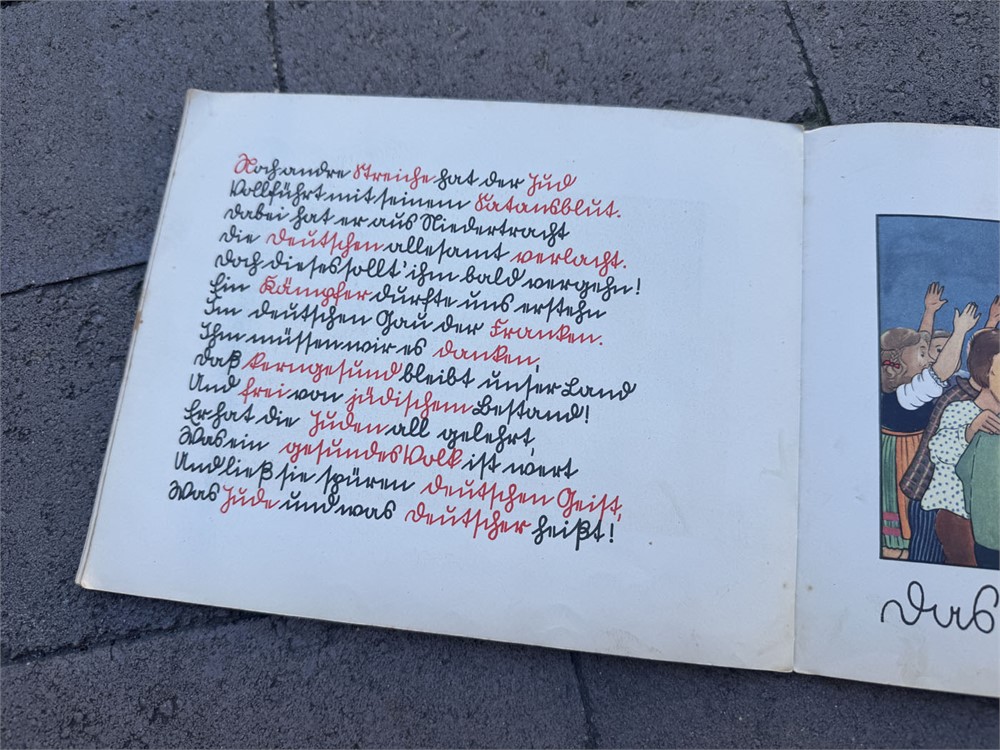 Noch andre Streiche hat der Jud
Vollführt mit seinem Satansblut.
Dabei hat er aus Niedertracht
Die Deutschen allesamt verlacht.
Doch dieses sollt' ihm bald vergehn!
Ein Kämpfer durfte uns erstehn
Im deutschen Gau der Franken.
Ihm müssen wir es danken,
Daß kerngesund bleibt unser Land
Und frei von jüdischem Bestand!
Er hat die Juden all gelehrt,
Was ein gesundes Volk ist wert
Und ließ sie spüren deutschen Geist,
Was Jude und was Deutscher heißt!
Das